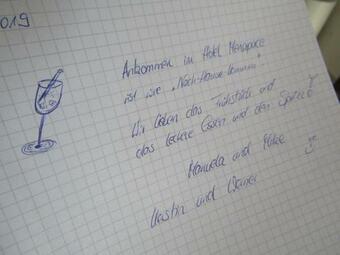 019
Ankommen im Hotel Menapace
ist wie „Nach-Hause-kommen"
Wir lieben das Frühstück und
das leckere Essen und den Spritz
Manuela und Mike
und